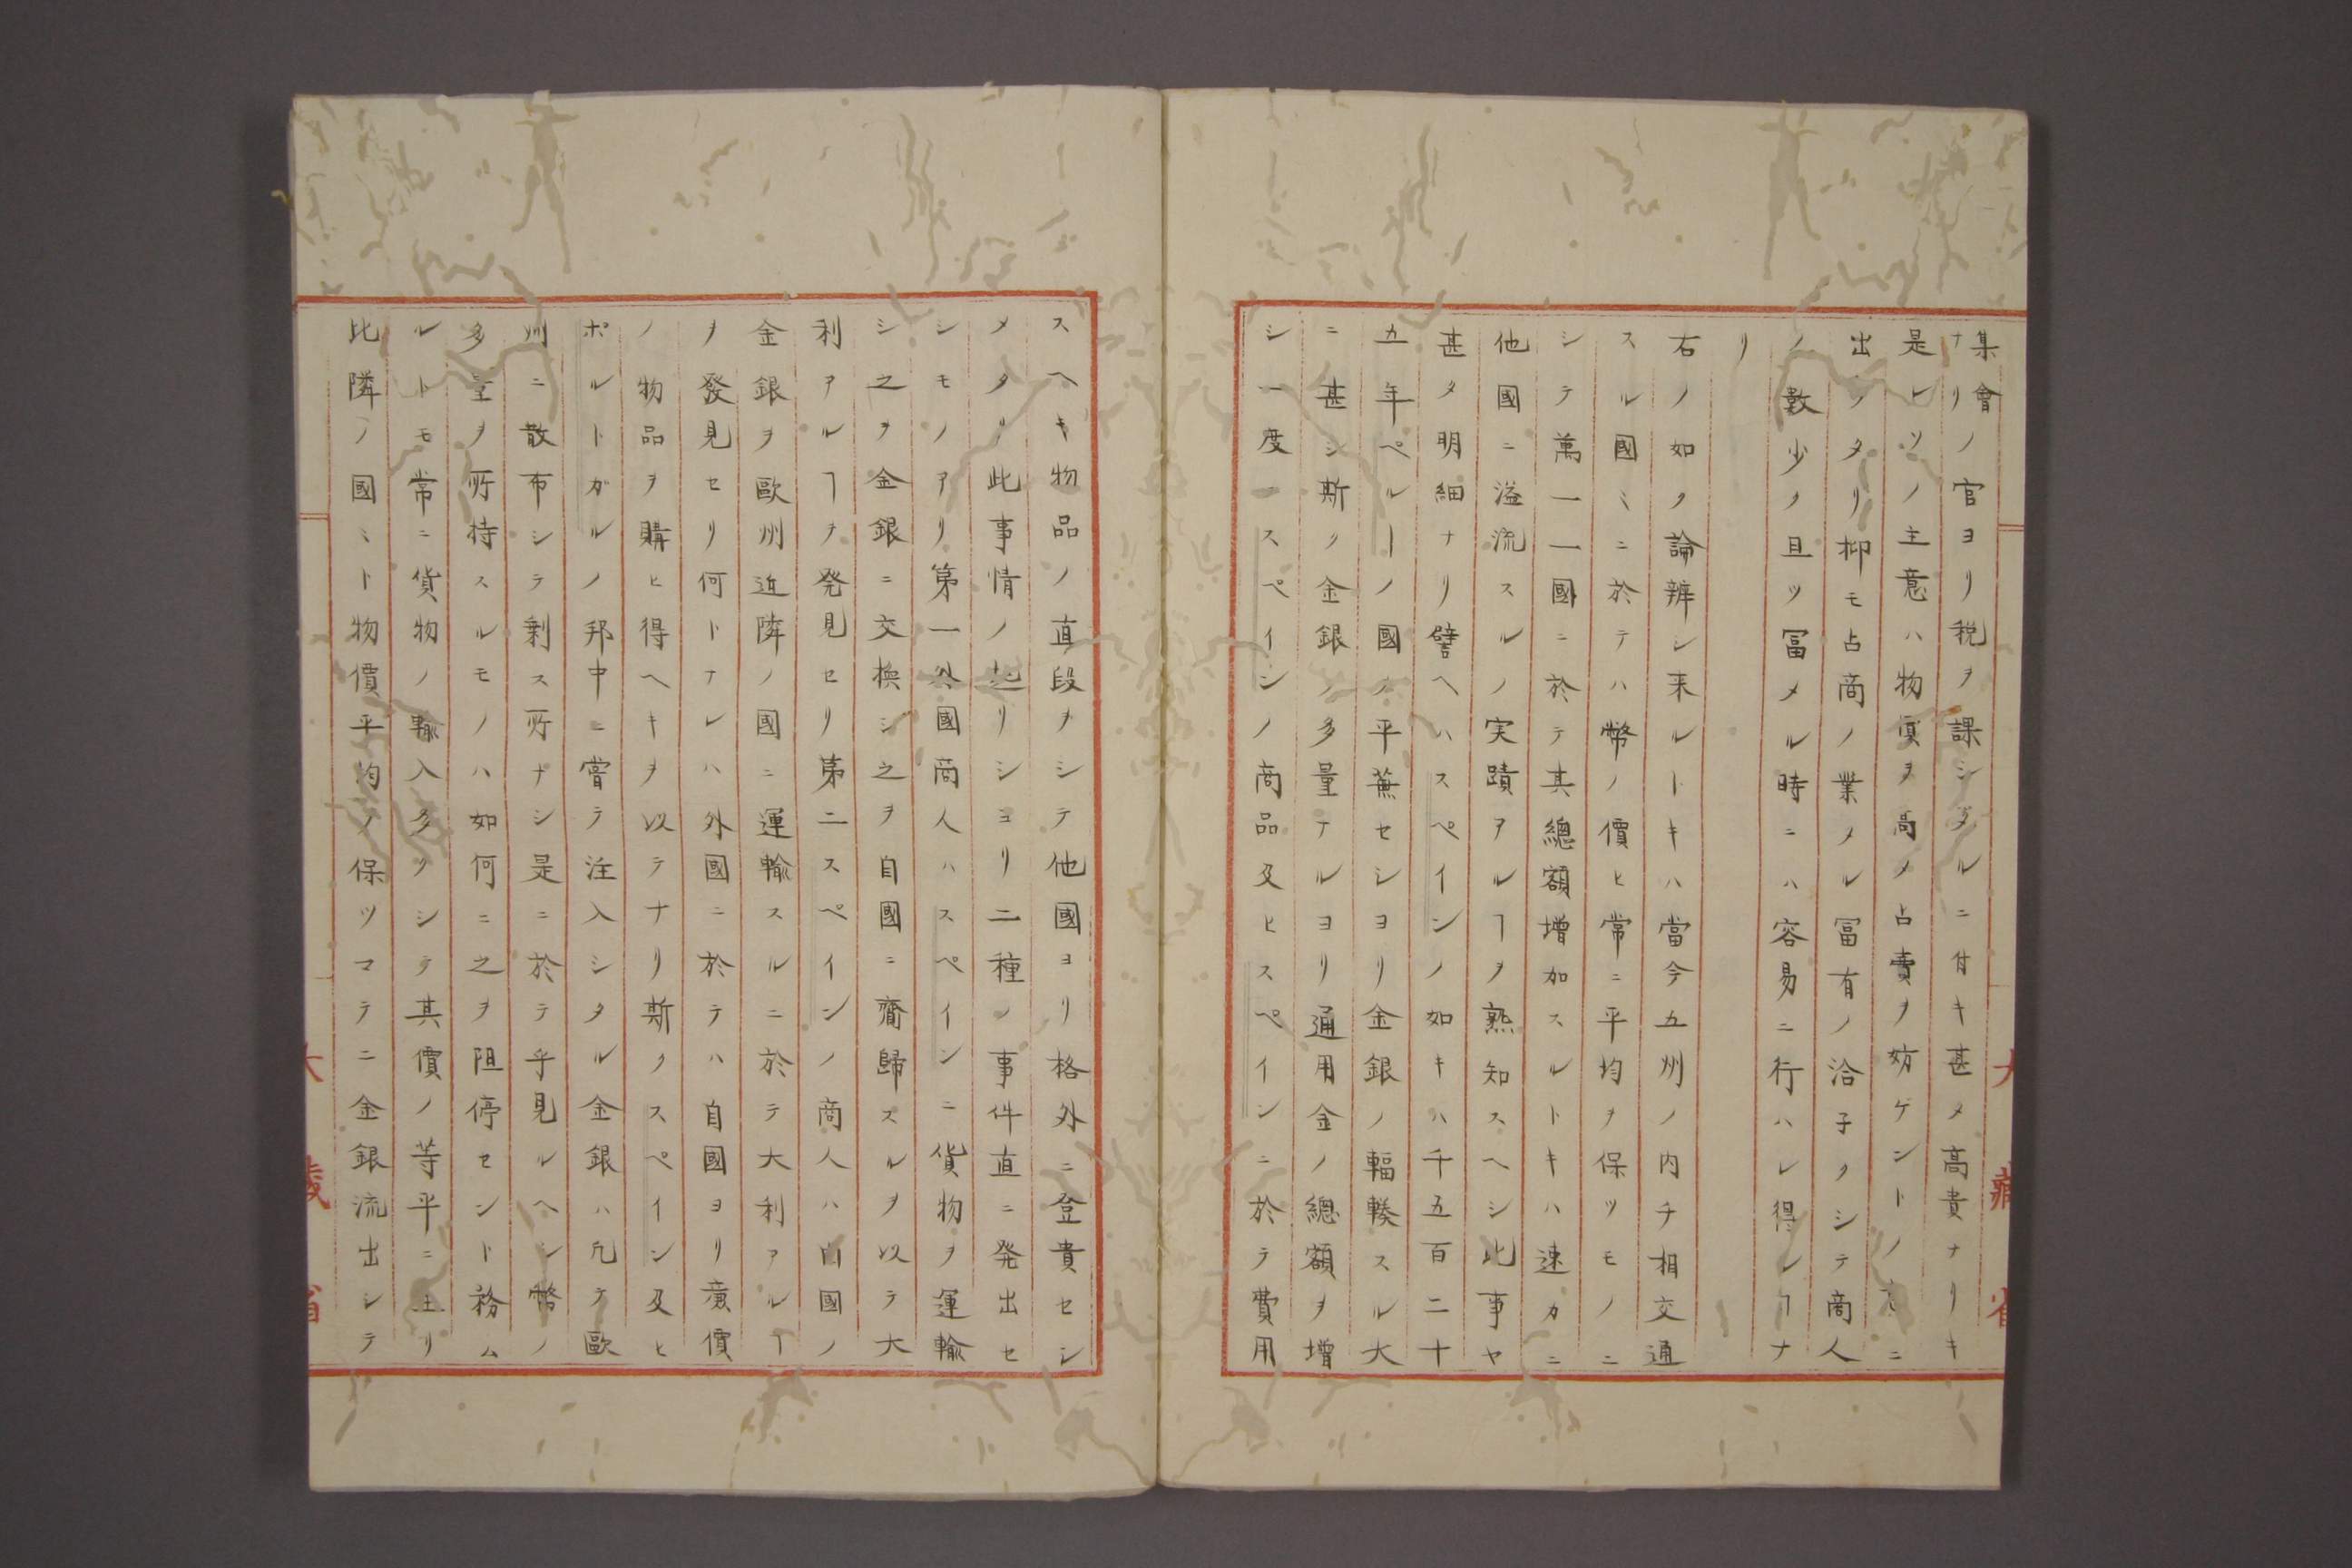 集會ノ官ヨリ税ヲ課シタルニ付キ甚タ高貴ナリキ
ナリ
是レソノ主意ハ物價ヲ高メ占賣ヲ妨ゲントノ ニ
出シタリ抑モ占商ノ業タル冨有ノ洽子クシテ商人
ノ數少ク且ツ冨メル時ニハ容易ニ行ハレ得シヿナ
リ
右ノ如ク論辨シ来ルトキハ當今五州ノ内チ相交通
スル國〻ニ於テハ幣ノ價ヒ常ニ平均ヲ保ツモノニ
シテ萬一一國ニ於テ其總額増加スルトキハ速カニ
他國ニ溢流スルノ実蹟アルヿヲ熟知スヘシ此事ヤ
甚タ明細ナリ譬ヘハスペインノ如キハ千五百二十
五年ペルーノ國ノ平蕪セシヨリ金銀ノ輻輳スル大
ニ甚シ斯ク金銀ノ多量ナルヨリ通用金ノ總額ヲ増
シ一度ヒスペインノ商品及ヒスペインニ於テ費用
スヘキ物品ノ直段ヲシテ他國ヨリ格外ニ登貴セシ
メタリ此事情ノ起リシヨリ二種ノ事件直ニ発出セ
シモノアリ第一外國商人ハスペインニ貨物ヲ運輸
シ之ヲ金銀ニ交換シ之ヲ自國ニ齎歸スルヲ以テ大
利アルヿヲ発見セリ第二スペインノ商人ハ自國ノ
金銀ヲ歐州近隣ノ國ニ運輸スルニ於テ大利アルヿ
ヲ發見セリ何トナレハ外國ニ於テハ自國ヨリ廉價
ノ物品ヲ購ヒ得ヘキヲ以テナリ斯クスペイン及ヒ
ポルトガルノ邦中ニ甞テ注入シタル金銀ハ凡テ歐
州ニ散布シテ剰ス所ナシ是ニ於テ乎見ルヘシ幣ノ
多量ヲ所持スルモノハ如何ニ之ヲ阻停セント務ム
ルトモ常ニ貨物ノ輸入多クシテ其價ノ等平ニ至リ
比隣ノ國〻ト物價平均ノ保ツマテニ金銀流出シテ
大藏省
大藏省